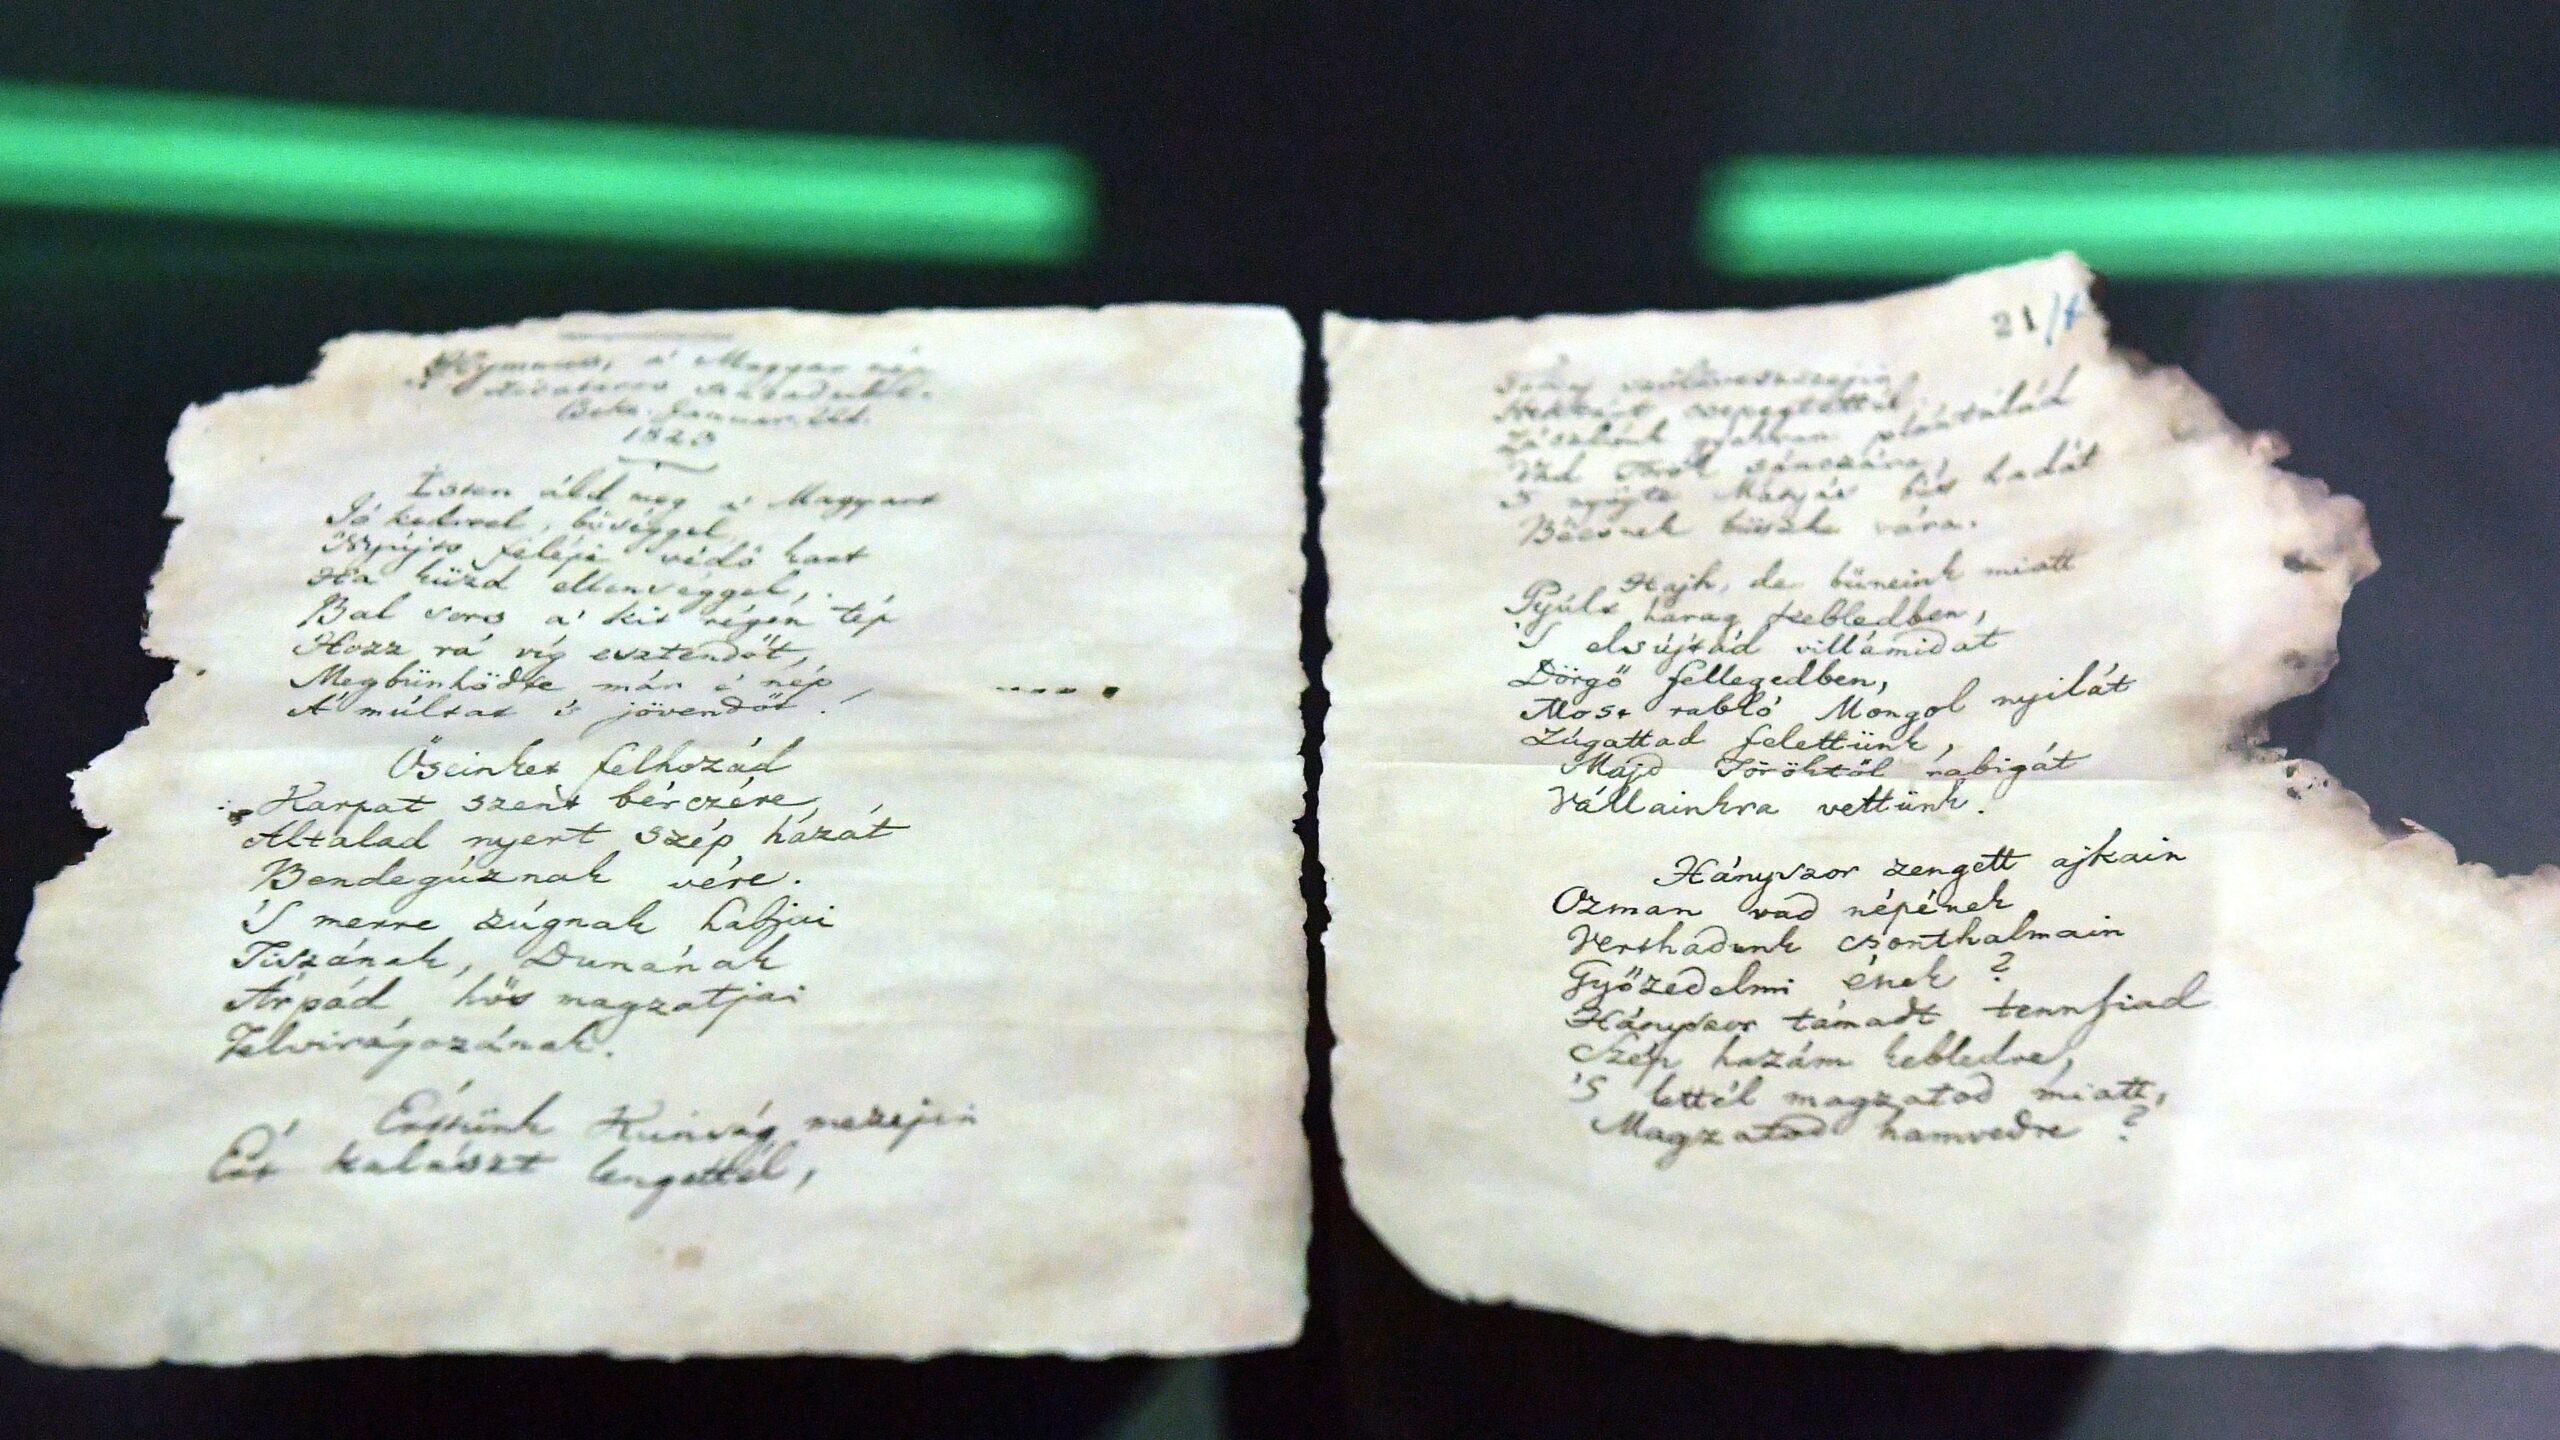 Hymnus, a' Magyar nép
zivataros századaiból.
Cseke. Januar. 22d.
1823
Isten áld meg a' Magyart
Jó kedvvel, bőséggel,
Nyújts feléje védő kart
Ha küzd ellenséggel,
Bal sors a' kit régen tép
Hozz rá víg esztendőt,
Megbünhödte már e' nép,
A' múltat 's jövendőt!
Őseinket felhozád
Karpat szent bérczére,
Általad nyert szép házát
Bendegúznak vére.
'S merre zúgnak habjai
Tiszának, Dunának
Árpád hős magzatjai
Felvirágozának.
Értünk Kunság mezején
Ért kalászt lengettél,
21/
Tokaj szőlővesszején
Nektárt csepegtettél.
Zászlónk gyakran plántálád
Vad Török sánczára,
'S nyögte Mátyás bús hadát
Bécsnek büszke vára.
Hajh, de bűneink miatt
Gyúlt harag kebledben,
'S elsújtád villámidat
Dörgő fellegedben,
Most rabló Mongol nyilát
Zúgattad felettünk,
Majd Töröktől rabigát
Vállainkra vettünk.
Hányszor zengett ajkain
Ozman vad népének
Vert hadunk csonthalmain
Győzedelmi ének?
Hányszor támadt tennfiad
Szép hazám kebledre,
'S lettél magzatod miatt,
Magzatod hamvedre?